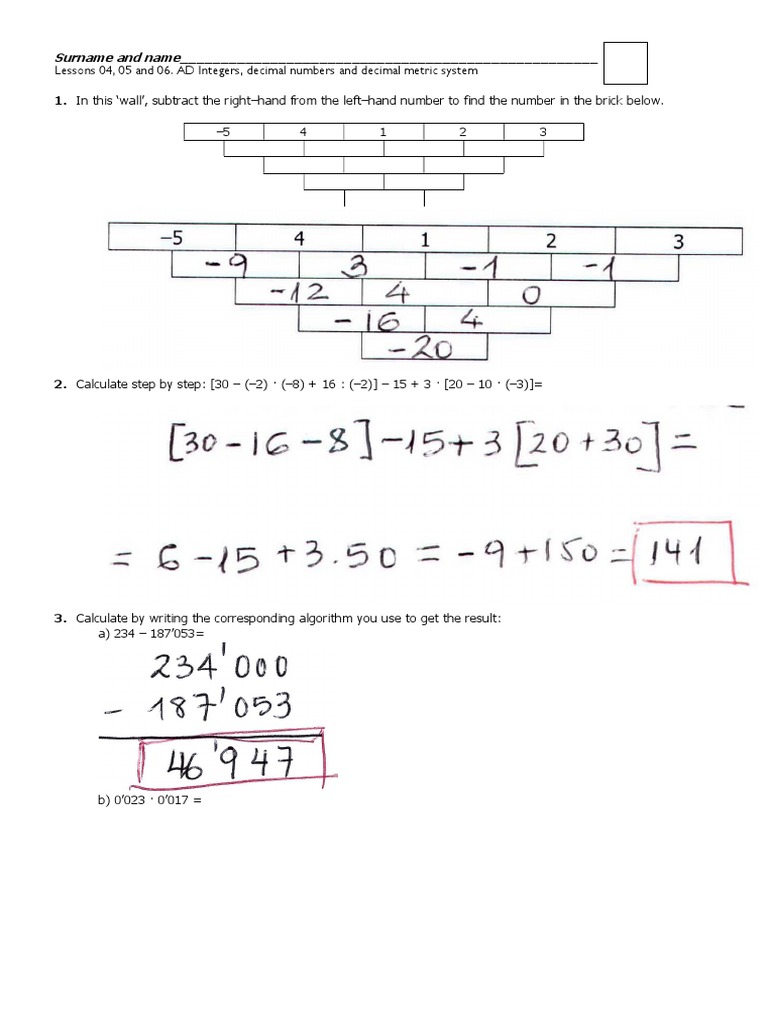 Surname and name
Lessons 04, 05 and 06. AD Integers, decimal numbers and decimal metric system
1. In this ‘wall’, subtract the right–hand from the left–hand number to find the number in the brick below.
–5 4 1 2 3
–5 4 1 2 3
-9 3 -1 -1
-12 4 0
-16 4
-20
2. Calculate step by step: [30 – (–2) · (–8) + 16 : (–2)] – 15 + 3 · [20 – 10 · (–3)]=
[30-16-8]-15+3[20+30]=
= 6-15+3.50 = -9+150 = 141
3. Calculate by writing the corresponding algorithm you use to get the result:
a) 234 – 187’053=
234'000
- 187'053
46'947
b) 0’023 · 0’017 =